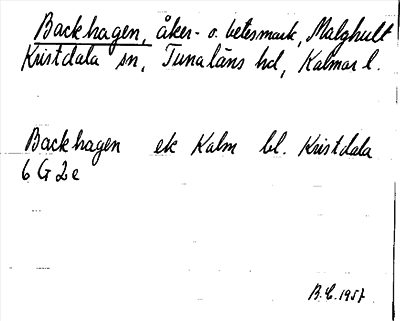 Backhagen, åker- o. betesmark, Malghult
Kristdala sn, Tunaläns hd, Kalmar l.
Backhagen ek Kalm bl. Kristdala
6 G 2 e
B.E. 1957